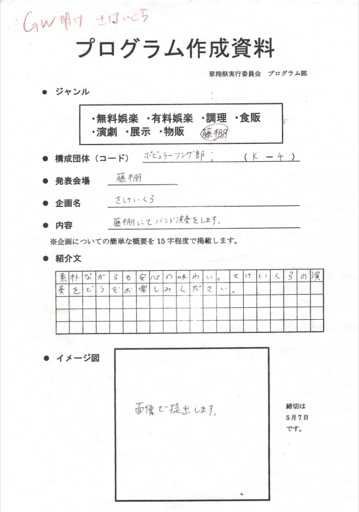 GW明け さけいくら
プログラム作成資料
翠翔祭実行委員会 プログラム部
● ジャンル
・無料娯楽 ・有料娯楽 ・調理 ・食販
・演劇 ・展示 ・物販 藤棚
● 構成団体（コード） ポピュラーソング部 （K－4）
● 発表会場 藤棚
● 企画名 さけいくら
● 内容 藤棚にてバンド演奏をします。
※企画についての簡単な概要を15字程度で掲載します。
● 紹介文
素朴ながらも安心の味わい。さけいくらの演
奏をどうぞお楽しみください。
● イメージ図
画像で提出します。
締切は
5月7日
です。